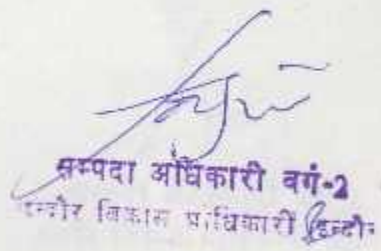 सम्पदा अधिकारी वर्ग-2
इन्दौर विकास प्राधिकारी इन्दौर